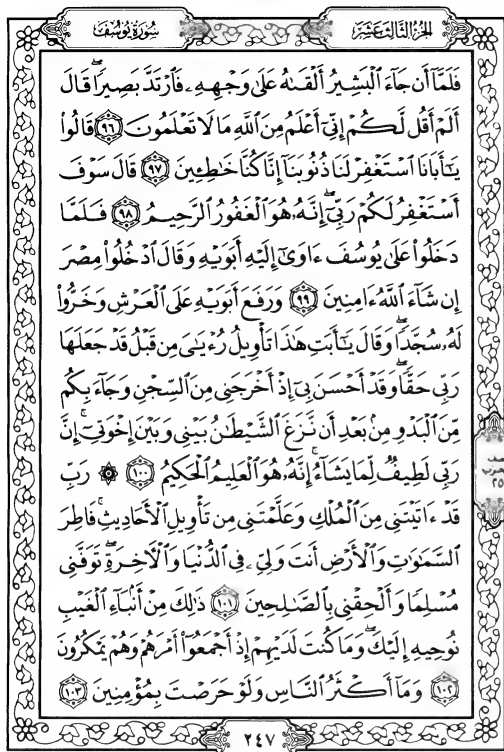 سُورَةُ يُوسُفَ
الجُزْءُ الثَّالِثَ عَشَرَ
فَلَمَّآ أَن جَآءَ ٱلۡبَشِيرُ أَلۡقَىٰهُ عَلَىٰ وَجۡهِهِۦ فَٱرۡتَدَّ بَصِيرٗاۖ قَالَ
أَلَمۡ أَقُل لَّكُمۡ إِنِّيٓ أَعۡلَمُ مِنَ ٱللَّهِ مَا لَا تَعۡلَمُونَ ٩٦ قَالُواْ
يَٰٓأَبَانَا ٱسۡتَغۡفِرۡ لَنَا ذُنُوبَنَآ إِنَّا كُنَّا خَٰطِـِٔينَ ٩٧ قَالَ سَوۡفَ
أَسۡتَغۡفِرُ لَكُمۡ رَبِّيٓۖ إِنَّهُۥ هُوَ ٱلۡغَفُورُ ٱلرَّحِيمُ ٩٨ فَلَمَّا
دَخَلُواْ عَلَىٰ يُوسُفَ ءَاوَىٰٓ إِلَيۡهِ أَبَوَيۡهِ وَقَالَ ٱدۡخُلُواْ مِصۡرَ
إِن شَآءَ ٱللَّهُ ءَامِنِينَ ٩٩ وَرَفَعَ أَبَوَيۡهِ عَلَى ٱلۡعَرۡشِ وَخَرُّواْ
لَهُۥ سُجَّدٗاۖ وَقَالَ يَٰٓأَبَتِ هَٰذَا تَأۡوِيلُ رُءۡيَٰيَ مِن قَبۡلُ قَدۡ جَعَلَهَا
رَبِّي حَقّٗاۖ وَقَدۡ أَحۡسَنَ بِيٓ إِذۡ أَخۡرَجَنِي مِنَ ٱلسِّجۡنِ وَجَآءَ بِكُم
مِّنَ ٱلۡبَدۡوِ مِنۢ بَعۡدِ أَن نَّزَغَ ٱلشَّيۡطَٰنُ بَيۡنِي وَبَيۡنَ إِخۡوَتِيٓۚ إِنَّ
رَبِّي لَطِيفٞ لِّمَا يَشَآءُۚ إِنَّهُۥ هُوَ ٱلۡعَلِيمُ ٱلۡحَكِيمُ ١٠٠ ۞ رَبِّ
قَدۡ ءَاتَيۡتَنِي مِنَ ٱلۡمُلۡكِ وَعَلَّمۡتَنِي مِن تَأۡوِيلِ ٱلۡأَحَادِيثِۚ فَاطِرَ
ٱلسَّمَٰوَٰتِ وَٱلۡأَرۡضِ أَنتَ وَلِيِّۦ فِي ٱلدُّنۡيَا وَٱلۡأٓخِرَةِۖ تَوَفَّنِي
مُسۡلِمٗا وَأَلۡحِقۡنِي بِٱلصَّٰلِحِينَ ١٠١ ذَٰلِكَ مِنۡ أَنۢبَآءِ ٱلۡغَيۡبِ
نُوحِيهِ إِلَيۡكَۖ وَمَا كُنتَ لَدَيۡهِمۡ إِذۡ أَجۡمَعُوٓاْ أَمۡرَهُمۡ وَهُمۡ يَمۡكُرُونَ
١٠٢ وَمَآ أَكۡثَرُ ٱلنَّاسِ وَلَوۡ حَرَصۡتَ بِمُؤۡمِنِينَ ١٠٣
٢٤٧